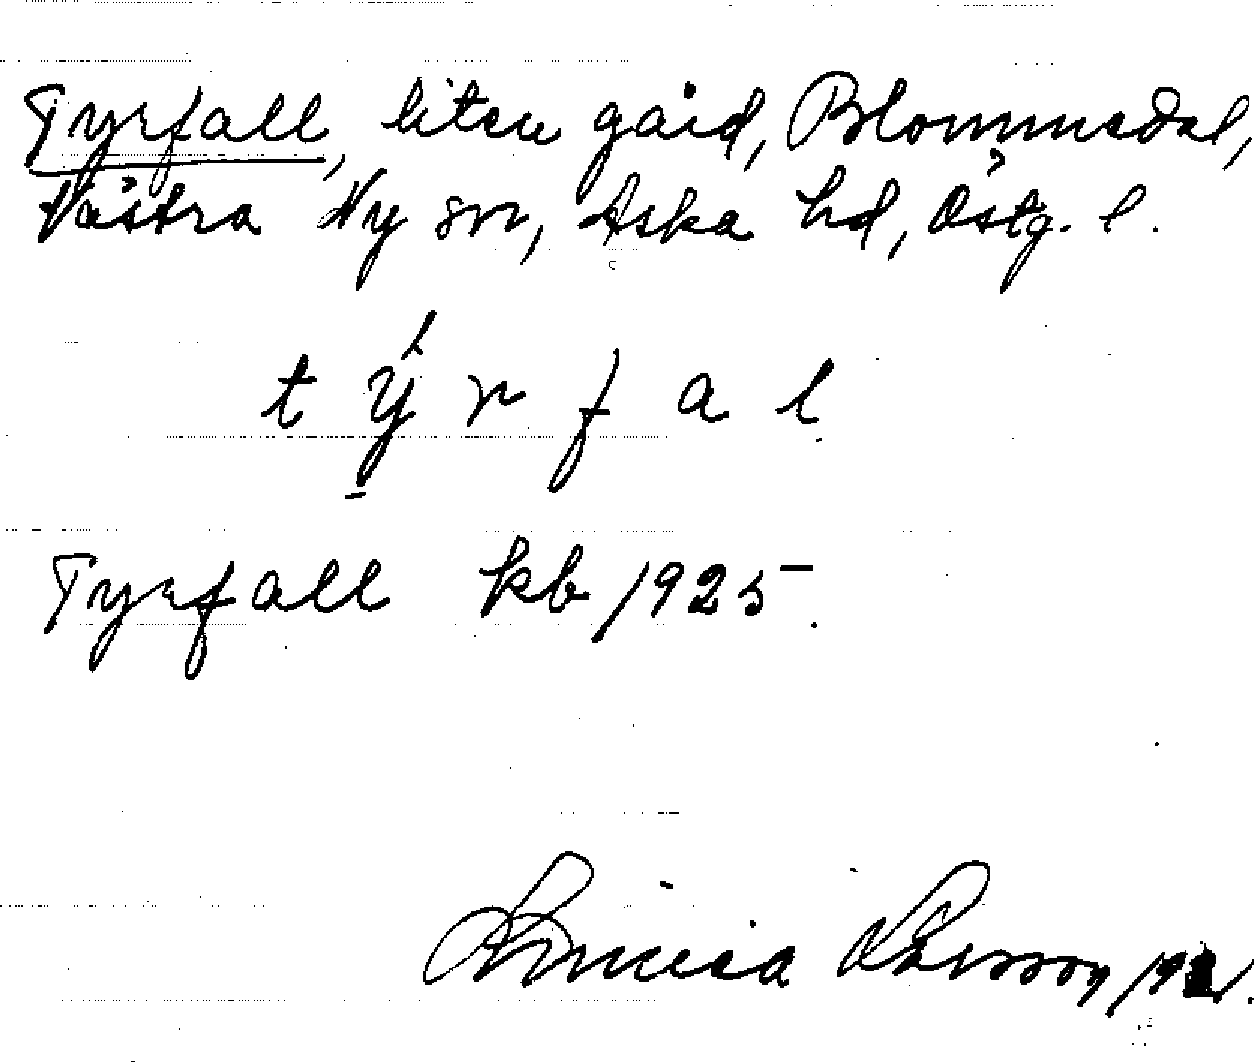 Tyrfall, liten gård, Blommedal,
Västra Ny sn, Aska hd, Östg. l.
t ý r f a l
Tyrfall kb/1925.